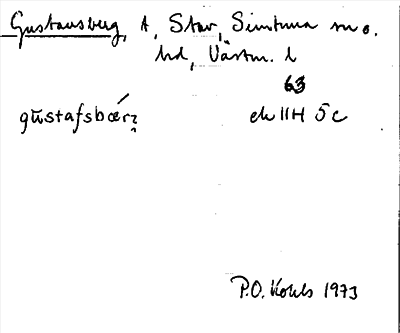 Gustavsberg, t, Stav, Simtuna sn o.
hd, Västm. l
63
gustafsbærz ek 11H 5c
P.O. Kohls 1973